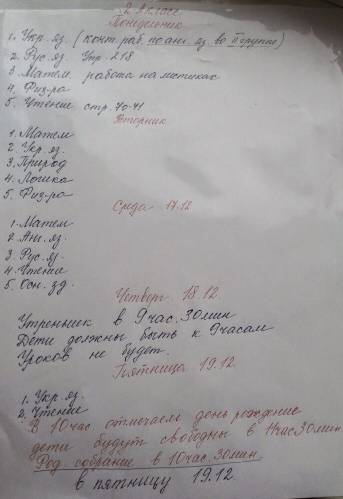 2 класс
Понедельник
1. Укр. яз. (контр. раб. по анг. яз. во II группе)
2. Рус. яз. Упр. 218
3. Матем работа на местиках
4. Физ-ра
5. Чтение стр. 70-71
Вторник
1. Матем
2. Укр. яз.
3. Природ
4. Логика
5. Физ-ра
Среда 17.12
1. Матем
2. Анг. яз.
3. Рус. яз.
4. Чтение
5. Осн. зд.
Четверг 18.12.
Утренник в 9 час. 30 мин
Дети должны быть к 9 часам
Уроков не будет.
Пятница 19.12.
1. Укр. яз.
2. Чтение
В 10 час отмечаем день рождение
дети будут свободны в 11 час 30 мин
Род собрание в 10 час. 30 мин.
в пятницу 19.12